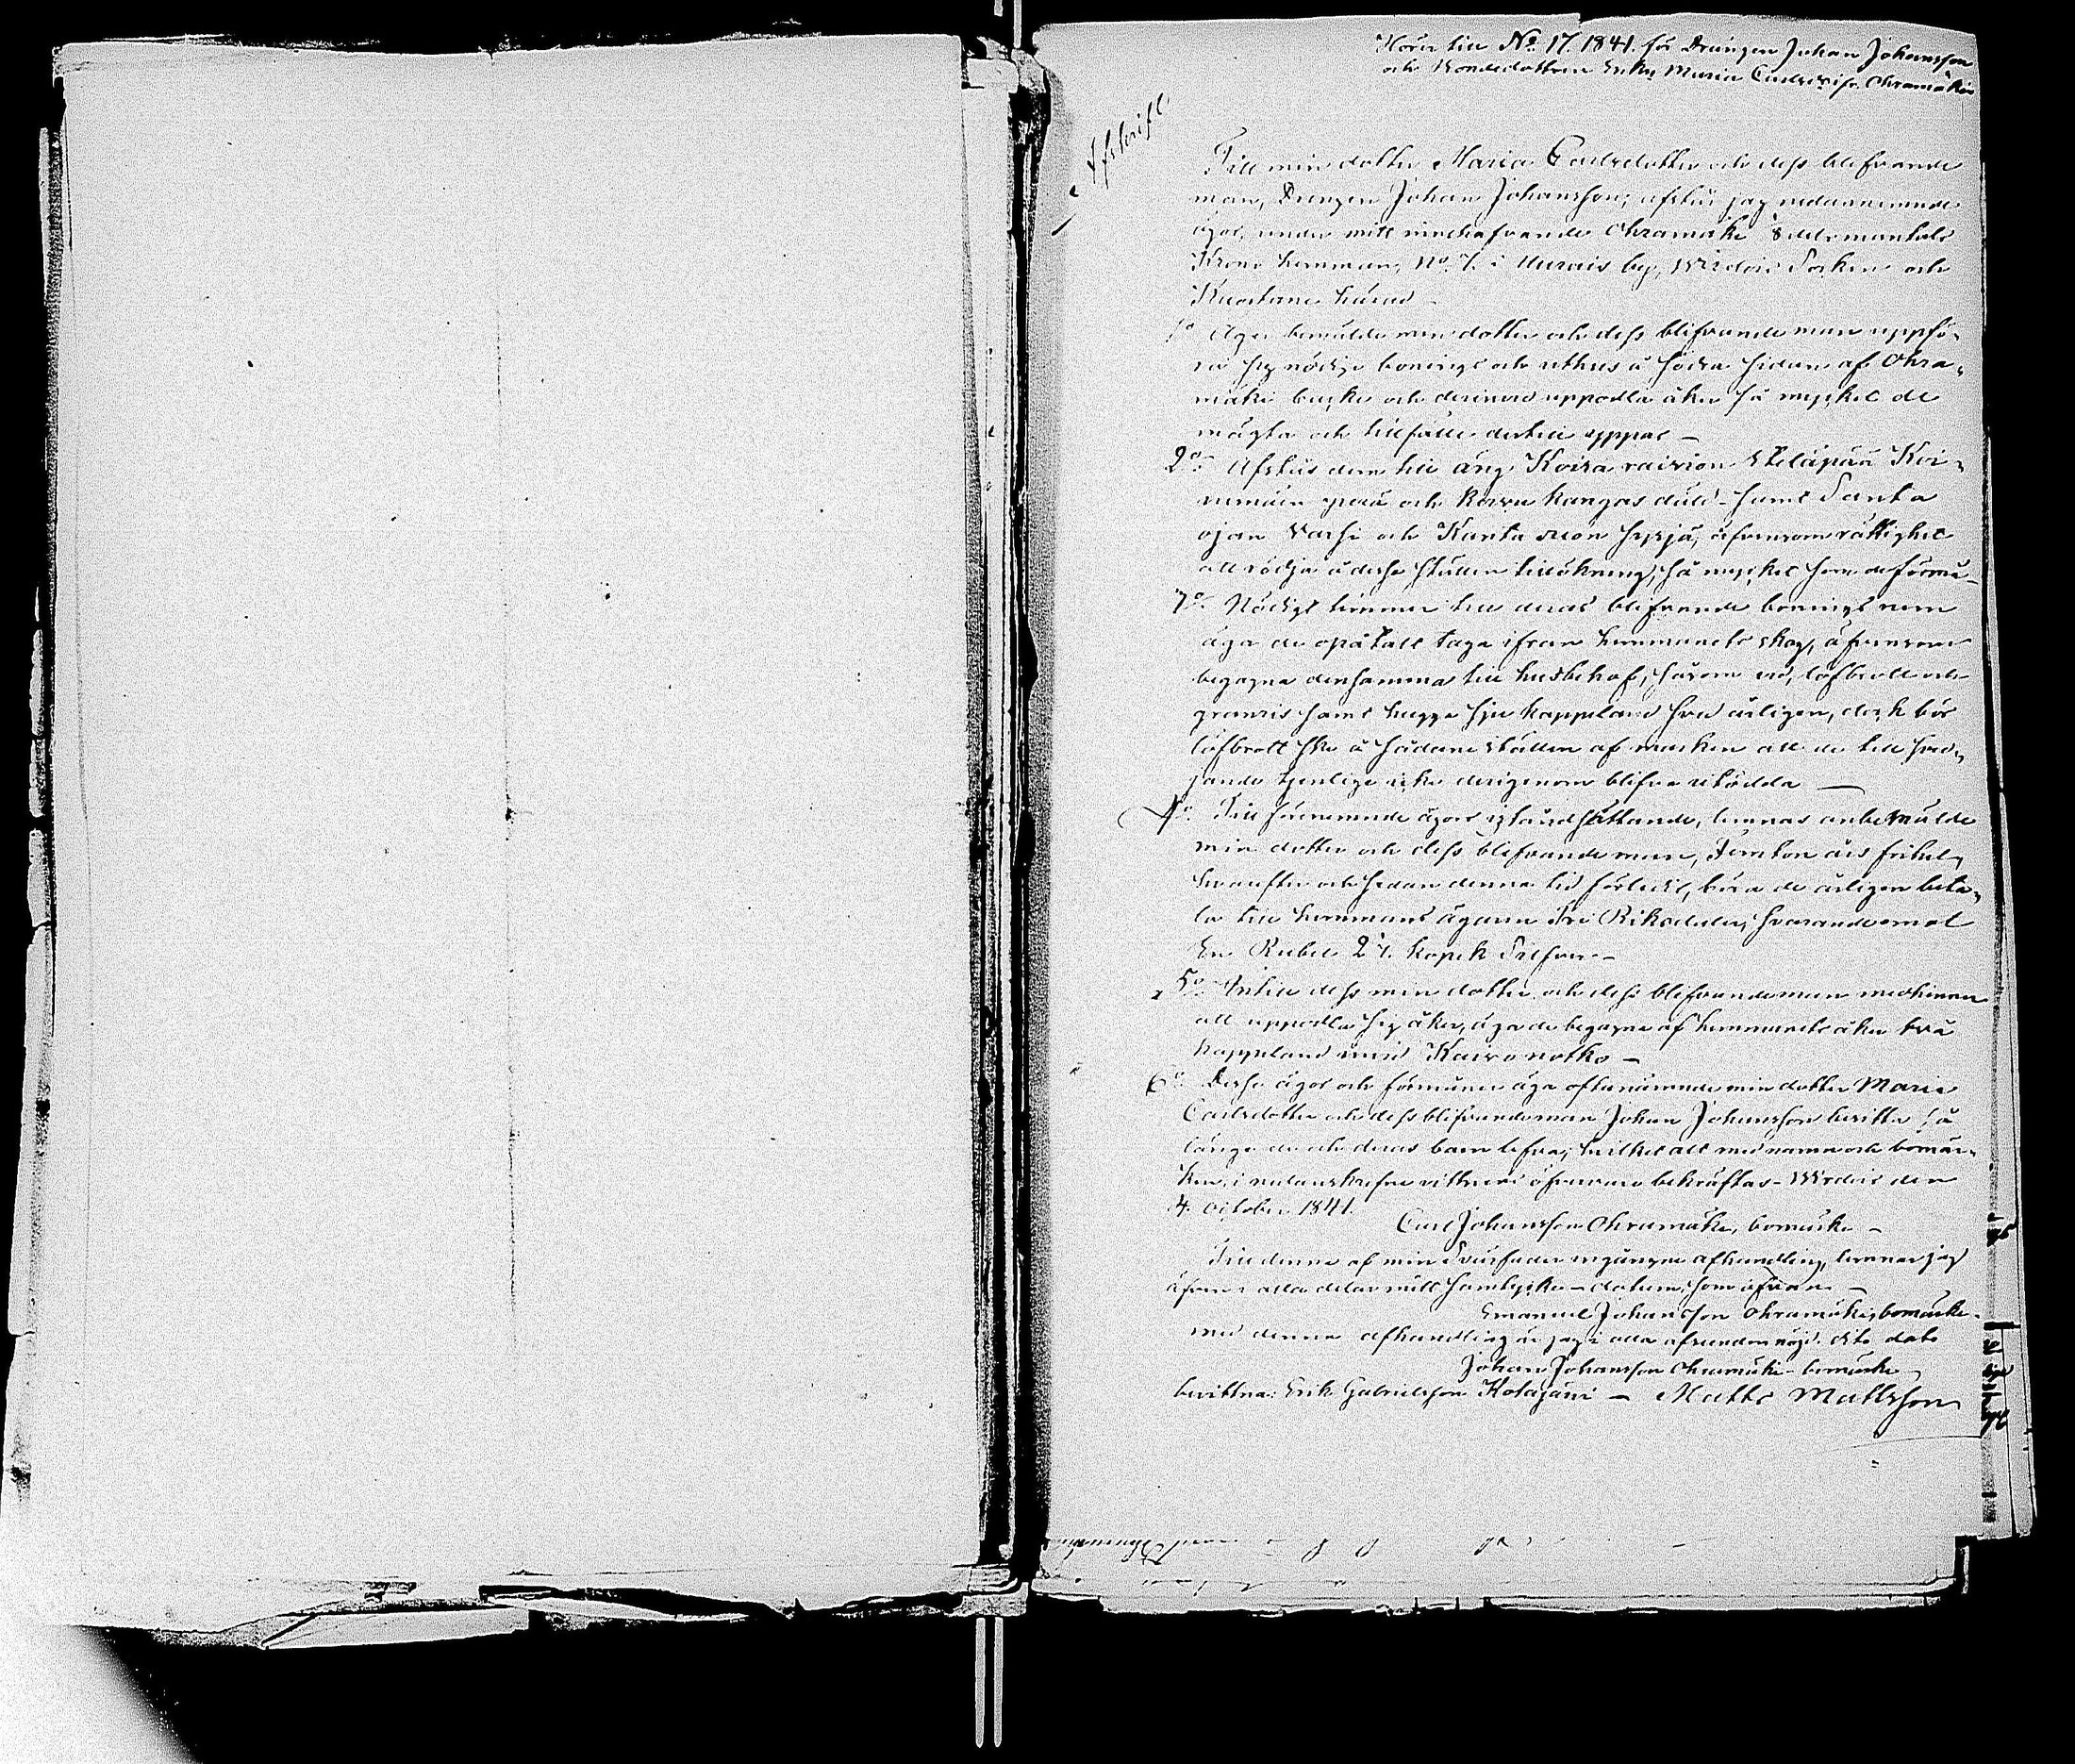 Hörer till No. 17. 1841. för Drängen Johan Johansson
och Bondedottren Enkn Maria Carlsdr ifr. Ohramäki
Afskrift
Till min dotter Maria Carlsdotter och dess blifvande
man, Drengen Johan Johansson, afstår jag nedannemnde
ägor, under mitt innehafvande Ohramäki 8 dels mantals
Krono hemman, No. 7. i Murais by, Wirdois Socken och
Kuortane härad –
1o Äger bemälde min dotter och dess blifvande man uppfö-
ra sig nödige bonings och uthus å södra sidan af Ohra-
mäki backe och derinvid uppodla åker så mycket de
mägta och tillfälle dertill yppas –
2o. Afstås dem till äng Koira raivion Yteläpää Koi-
nemäen perä och Korvu kangas däld – samt Santa
ojan varsi och Kanta suon syrjä, äfvensom rättighet
att rödja å desse ställen tillökning, så mycket som de förmå –
3o. Nödigt timmer till deras blifvande bonings rum
äga de opåtalt taga ifrån hemmanets skog, äfvensom
begagna densamma till husbehof, såsom ved, löfbrott och
granris samt hugga sju kappeland sved årligen, dock bör
löfbrott ske å sådane ställen af marken att de till sved-
jande tjenlige icke derigenom blifva utödda —
4o. Till förenemnde ägors iståndsättande, lemnas anbemälde
min dotter och dess blifvande man, Femton års frihet,
hvarefter och sedan denna tid förlidit, böra de årligen beta-
la till hemmans ägaren Tre Riksdaler, svarande emot
En Rubel 27. kopek Silfver –
5o. Intill dess min dotter och dess blifvande man medhinna
att uppodla sig åker, äga de begagna af hemmanets åker två
kappeland invid Kaivo notko –
6o. Desse ägor och förmåner äga oftanämnde min dotter Maria
Carlsdotter och dess blifvande man Johan Johansson besitta så
länge de och deras barn lefva, hvilket allt med namn och bomär-
ken, i undanskrefne vittnens öfvervaro bekräftas – Wirdois den
4. October 1841.
Carl Johansson Ohramäki, bomärke –
Till denna af min Svärfader ingångne afhandling, lemnar jag
äfven i alla delar mitt samtycke – datum, som ofvan –
Emanuel Johansson Ohramäki, bomärke –
med denna afhandling är jag i alla afseenden nöjd. dito dato
Johan Johansson Ohramäki – bomärke –
bevittna: Erik Gabrielsson Kotajärvi – Matts Mattsson